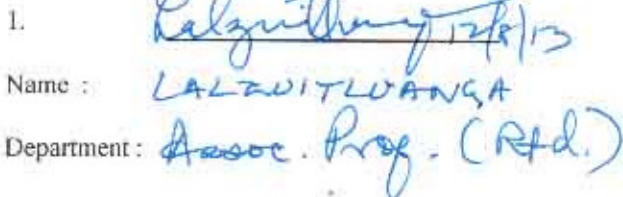 1. Lalzuitluanga 12/8/13
Name : LALZUITLUANGA
Department : Assoc. Prof. (Rtd.)